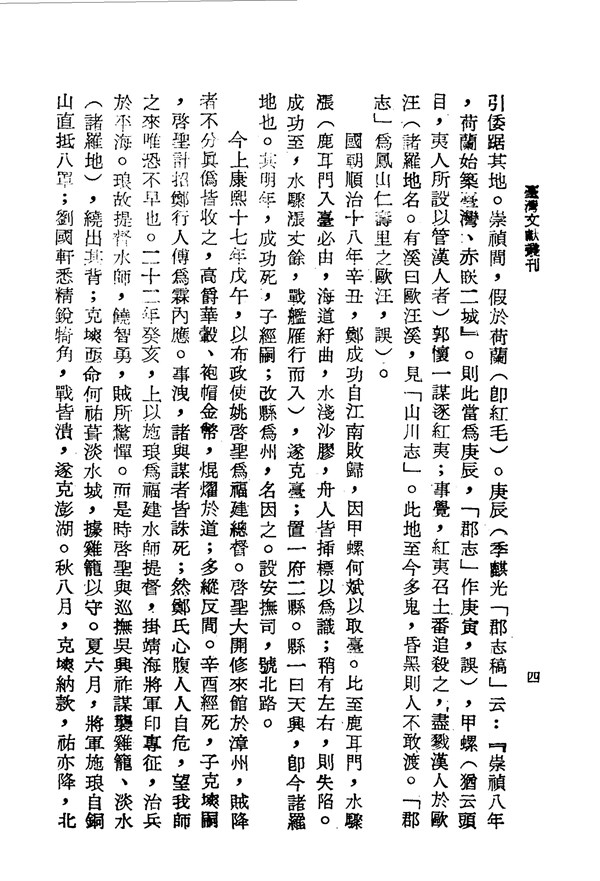 臺灣文獻叢刊
四
引倭踞其地。崇禎間,假於荷蘭(卽紅毛)。庚辰(季麒光「郡志稿」云:『崇禎八年
,荷蘭始築臺灣、赤嵌二城』。則此當爲庚辰,「郡志」作庚寅,誤),甲螺(猶云頭
目,夷人所設以管漢人者)郭懷一謀逐紅夷;事覺,紅夷召土番追殺之,盡戮漢人於歐
汪(諸羅地名。有溪曰歐汪溪,見「山川志」。此地至今多鬼,昏黑則人不敢渡。「郡
志」爲鳳山仁壽里之歐汪,誤)。
國朝順治十八年辛丑,鄭成功自江南敗歸,因甲螺何斌以取臺。比至鹿耳門,水驟
漲(鹿耳門入臺必由,海道紆曲,水淺沙膠,舟人皆揷標以爲識;稍有左右,則失陷。
成功至,水驟漲丈餘,戰艦雁行而入),遂克臺;置一府二縣。縣一曰天興,卽今諸羅
地也。其明年,成功死,子經嗣;改縣爲州,名因之。設安撫司,號北路。
今上康熙十七年戊午,以布政使姚啓聖爲福建總督。啓聖大開修來館於漳州,賊降
者不分眞僞皆收之,高爵華轂、袍帽金幣,焜燿於道;多縱反間。辛酉經死,子克塽嗣
,啓聖計招鄭行人傅爲霖內應。事洩,諸與謀者皆誅死;然鄭氏心腹人人自危,望我師
之來唯恐不早也。二十二年癸亥,上以施琅爲福建水師提督,掛靖海將軍印專征,治兵
於平海。琅故提督水師,饒智勇,賊所驚憚。而是時啓聖與巡撫吳興祚謀襲雞籠、淡水
(諸羅地),繞出其背;克塽亟命何祐葺淡水城,據雞籠以守。夏六月,將軍施琅自銅
山直抵八罩;劉國軒悉精銳犄角,戰皆潰,遂克澎湖。秋八月,克塽納款,祐亦降,北